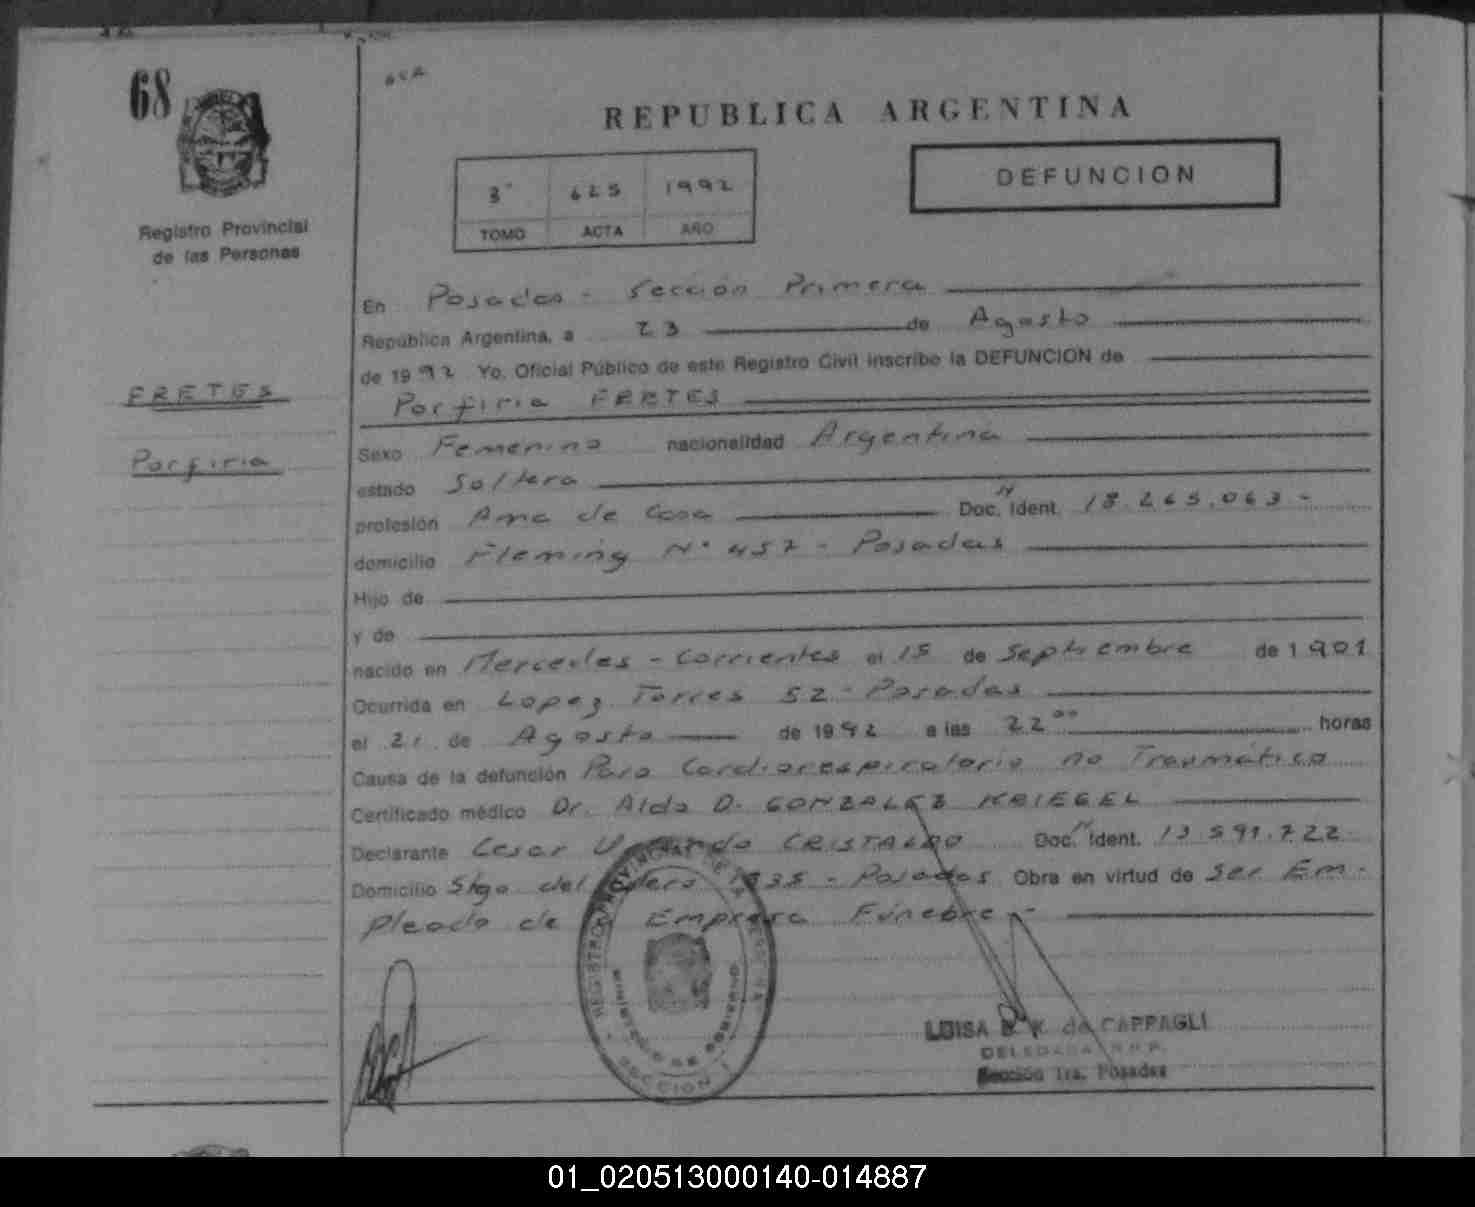 68
REPUBLICA ARGENTINA
3° 625 1992
TOMO ACTA AÑO
DEFUNCION
Registro Provincial
de las Personas
En Posadas - Sección Primera
República Argentina, a 23 de Agosto
de 1992 Yo, Oficial Público de este Registro Civil inscribo la DEFUNCION de
FRETES
Porfiria FRETES
Sexo Femenino nacionalidad Argentina
Porfiria
estado Soltera
profesión Ama de Casa Doc. N Ident. 18.265.063-
domicilio Fleming N° 457 - Posadas
Hijo de
y de
nacido en Mercedes - Corrientes el 15 de Septiembre de 1901
Ocurrida en Lopez Torres 52 - Posadas
el 21 de Agosto de 1992 a las 22 00 horas
Causa de la defunción Paro Cardiorespiratorio no Traumático
Certificado médico Dr. Aldo D. GONZALEZ KRIEGEL
Declarante Cesar CRISTALDO Doc. N Ident. 13.591.722
Domicilio Stgo del Estero 1935 - Posadas Obra en virtud de Ser Em-
pleado de Empresa Fúnebre.-
REGISTRO PROVINCIAL DE LAS PERSONAS
MINISTERIO DE GOBIERNO
SECCION 1
LUISA K. de CAPPAGLI
DELEGADA R.P.P.
Sección 1ra. Posadas
01_020513000140-014887